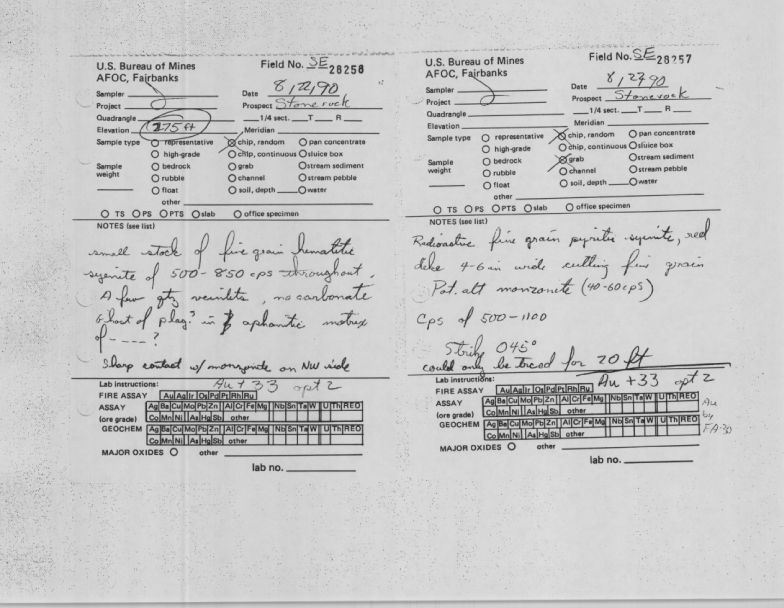 U.S. Bureau of Mines
AFOC, Fairbanks
Field No. SE 28258
Sampler
Date 8/22/90
Project
Prospect Stonerock
Quadrangle
1/4 sect. T R
Elevation 275 ft
Meridian
Sample type
representative
chip, random
pan concentrate
high-grade
chip, continuous
sluice box
Sample weight
bedrock
grab
stream sediment
rubble
channel
stream pebble
float
soil, depth
water
other
TS PS PTS slab office specimen
NOTES (see list)
small stock of fine grain hematitic
syenite of 500-850 cps throughout.
A few qtz veinlets, no carbonate
Ghost of plag? in aphanitic matrix
of ----?
Sharp contact w/ monzonite on NW side
Lab instructions: Au + 33 opt 2
FIRE ASSAY Au Ag Ir Os Pd Pt Rh Ru
ASSAY Ag Ba Cu Mo Pb Zn Al Cr Fe Mg Nb Sn Ta W U Th REO
(ore grade) Co Mn Ni As Hg Sb other
GEOCHEM Ag Ba Cu Mo Pb Zn Al Cr Fe Mg Nb Sn Ta W U Th REO
Co Mn Ni As Hg Sb other
MAJOR OXIDES other
lab no.
U.S. Bureau of Mines
AFOC, Fairbanks
Field No. SE 28257
Sampler
Date 8/22/90
Project
Prospect Stonerock
Quadrangle
1/4 sect. T R
Elevation
Meridian
Sample type
representative
chip, random
pan concentrate
high-grade
chip, continuous
sluice box
Sample weight
bedrock
grab
stream sediment
rubble
channel
stream pebble
float
soil, depth
water
other
TS PS PTS slab office specimen
NOTES (see list)
Radioactive fine grain pyritic syenite, red
dike 4-6 in wide cutting fine grain
Pot. alt monzonite (40-60 cps)
Cps of 500-1100
Strike 045°
could only be traced for 20 ft
Lab instructions: Au + 33 opt 2
FIRE ASSAY Au Ag Ir Os Pd Pt Rh Ru
ASSAY Ag Ba Cu Mo Pb Zn Al Cr Fe Mg Nb Sn Ta W U Th REO
(ore grade) Co Mn Ni As Hg Sb other
GEOCHEM Ag Ba Cu Mo Pb Zn Al Cr Fe Mg Nb Sn Ta W U Th REO
Co Mn Ni As Hg Sb other
Au
by
FA-30
MAJOR OXIDES other
lab no.